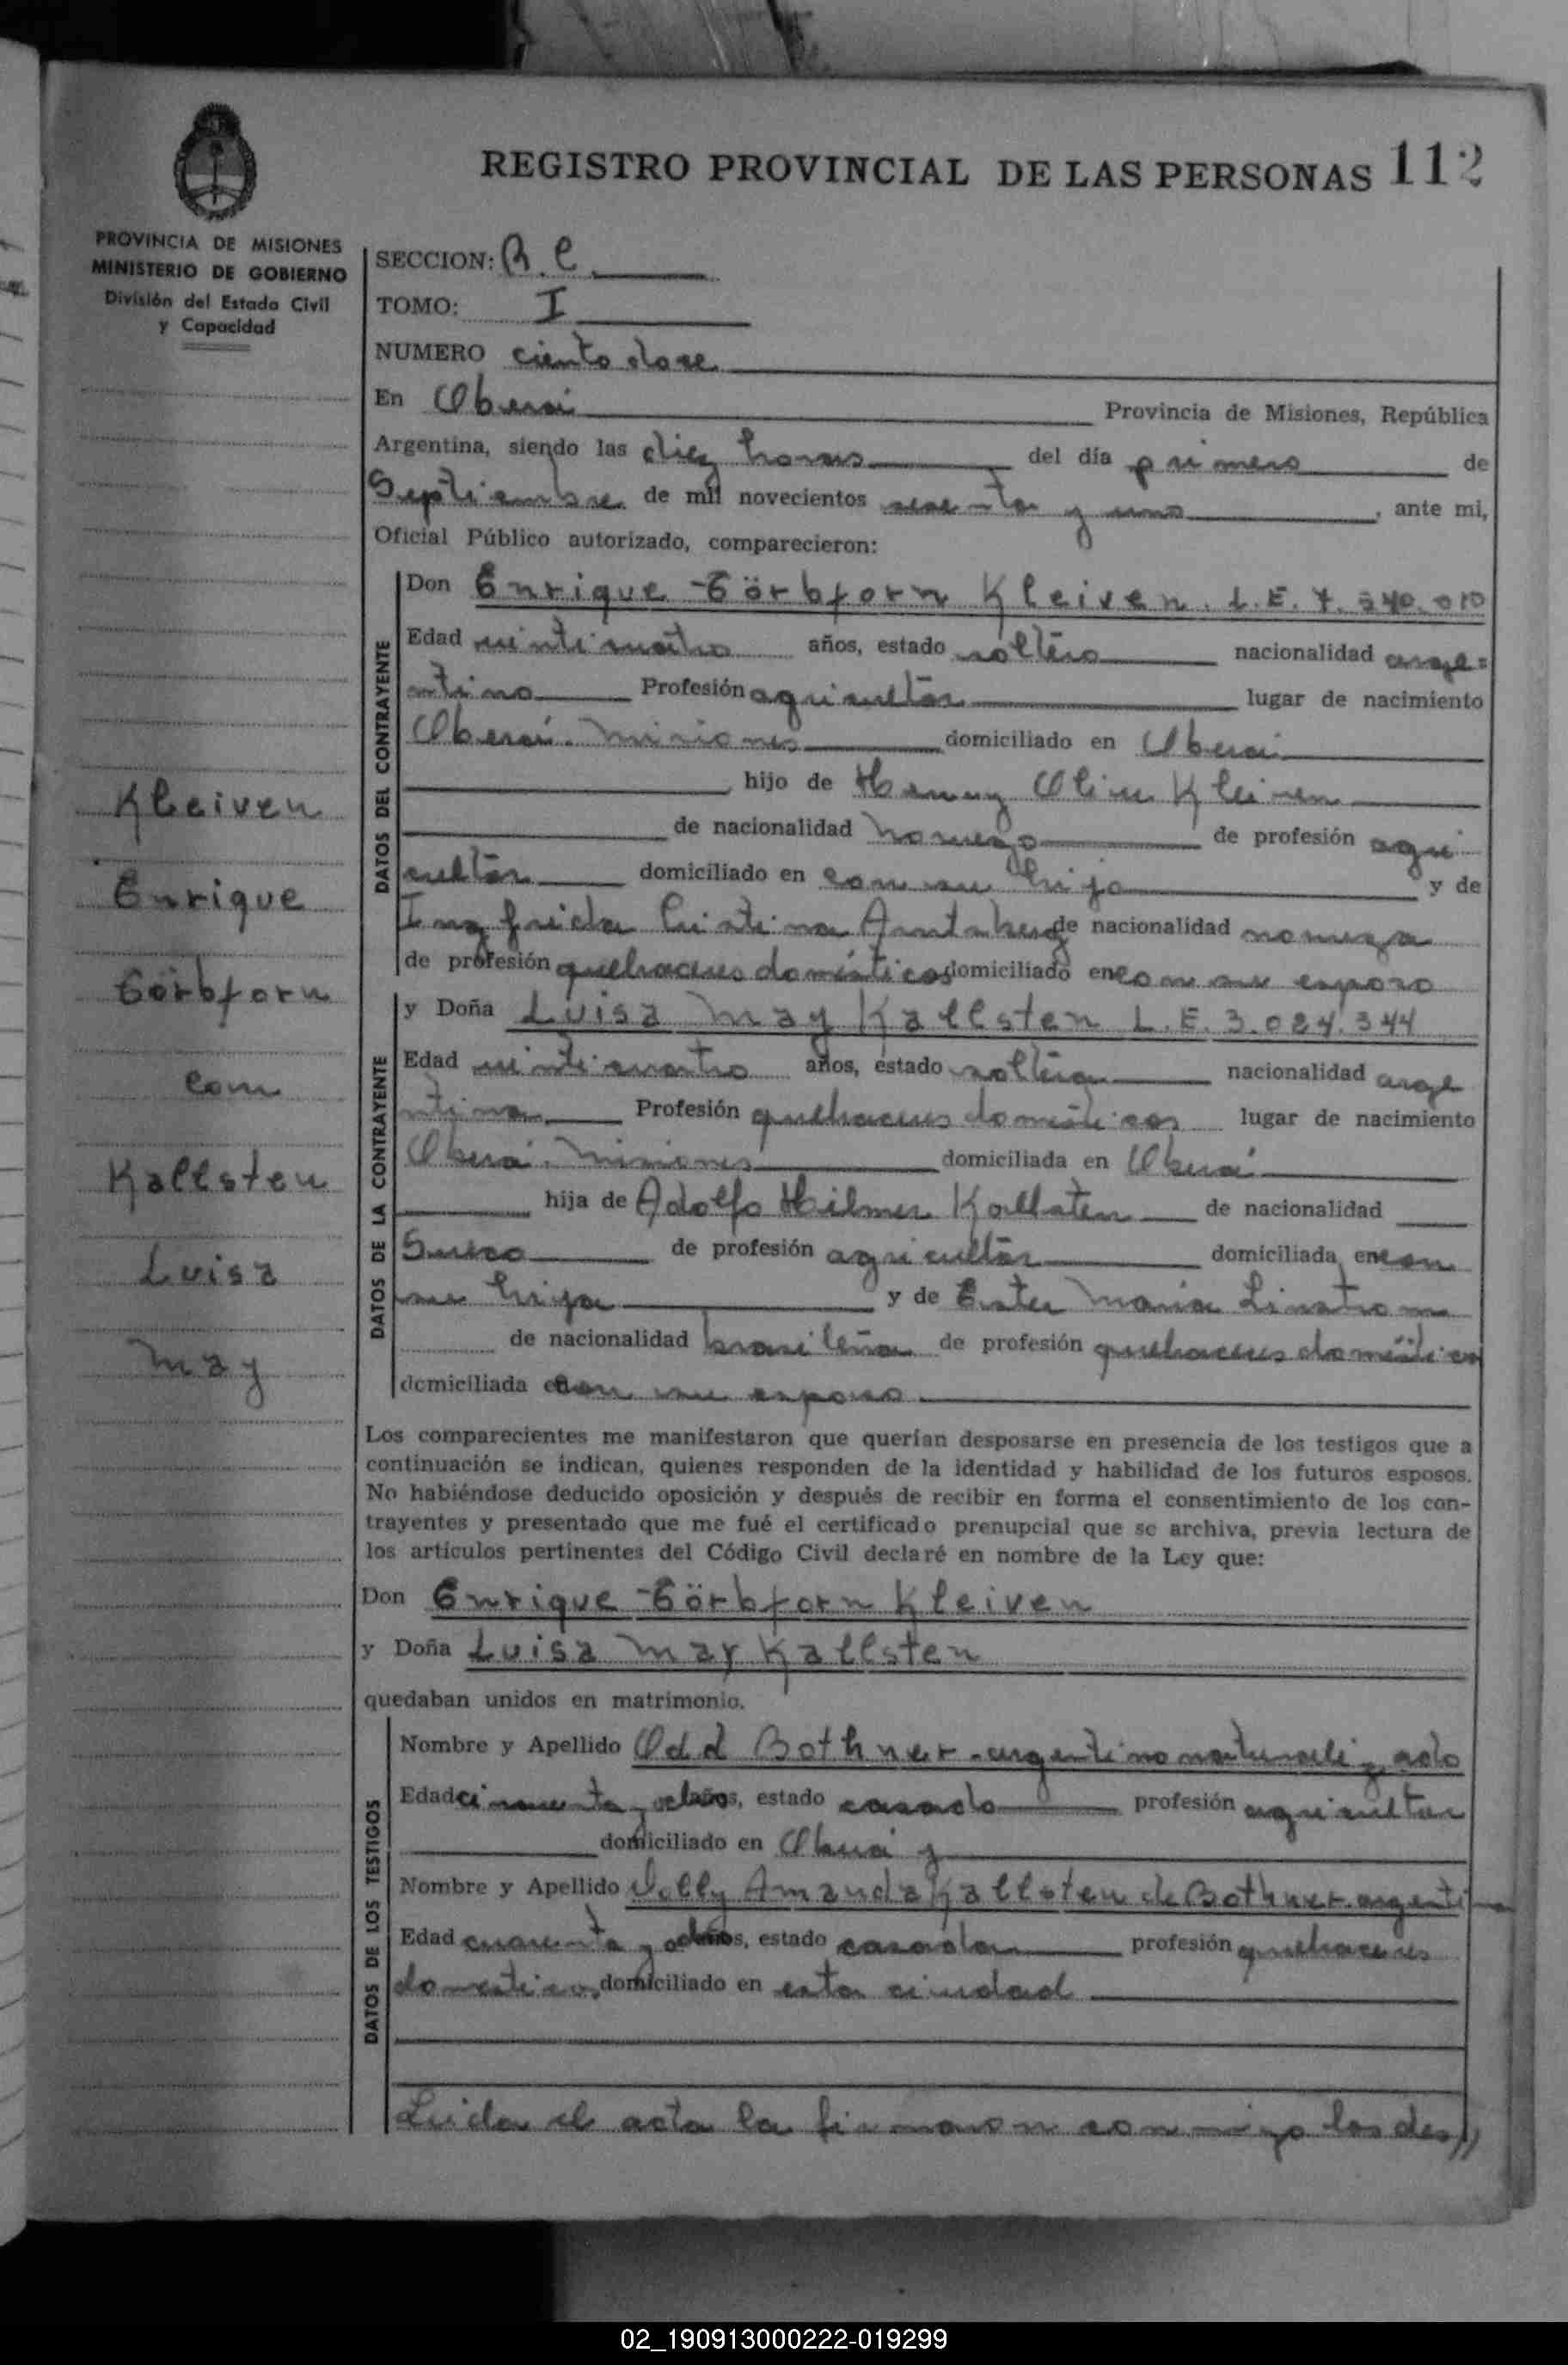 REGISTRO PROVINCIAL DE LAS PERSONAS 112
PROVINCIA DE MISIONES
MINISTERIO DE GOBIERNO
División del Estado Civil
y Capacidad
SECCION: R. C.
TOMO: I
NUMERO ciento doce
En Oberá Provincia de Misiones, República
Argentina, siendo las diez horas del día primero de
Septiembre de mil novecientos sesenta y uno, ante mi,
Oficial Público autorizado, comparecieron:
DATOS DEL CONTRAYENTE
Don Enrique Görbforn Kleiven. L.E. 7.540.010
Edad veinticuatro años, estado soltero nacionalidad arge=
ntino Profesión agricultor lugar de nacimiento
Oberá. Misiones domiciliado en Oberá
hijo de Henny Kleiven
de nacionalidad noruego de profesión agri
cultor domiciliado en con su hijo y de
Ingfrida Cristina de nacionalidad noruega
de profesión quehaceres domésticos domiciliado en con su esposo
DATOS DE LA CONTRAYENTE
y Doña Luisa May Kallsten L.E. 3.024.344
Edad veinticuatro años, estado soltera nacionalidad arge
ntina Profesión quehaceres domésticos lugar de nacimiento
Oberá. Misiones domiciliada en Oberá
hija de Adolfo Hilmer Kallsten de nacionalidad
Sueco de profesión agricultor domiciliada en con
su hija y de Ester María Linstrom
de nacionalidad brasileña de profesión quehaceres domésticos
domiciliada en con su esposo
Los comparecientes me manifestaron que querían desposarse en presencia de los testigos que a
continuación se indican, quienes responden de la identidad y habilidad de los futuros esposos.
No habiéndose deducido oposición y después de recibir en forma el consentimiento de los con-
trayentes y presentado que me fué el certificado prenupcial que se archiva, previa lectura de
los artículos pertinentes del Código Civil declaré en nombre de la Ley que:
Don Enrique Görbforn Kleiven
y Doña Luisa May Kallsten
quedaban unidos en matrimonio.
DATOS DE LOS TESTIGOS
Nombre y Apellido Odd Bothner - argentino naturalizado
Edad cincuenta y años, estado casado profesión agricultor
domiciliado en Oberá y
Nombre y Apellido Dolly Amanda Kallsten de Bothner. argentina
Edad cuarenta y años, estado casada profesión quehaceres
domésticos, domiciliado en esta ciudad
Leida el acta la firmaron conmigo los des//
Kleiven
Enrique
Görbforn
con
Kallsten
Luisa
May
02_190913000222-019299